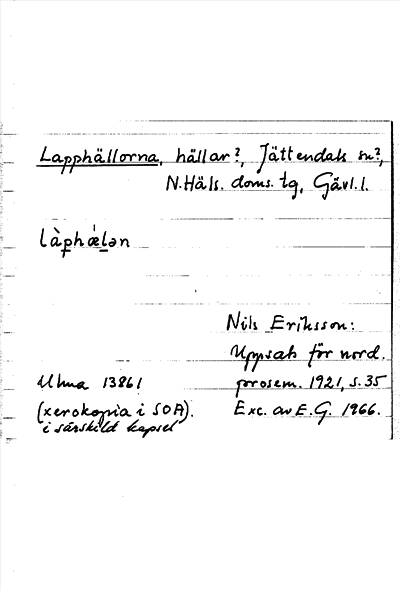 Lapphällorna, hällar?, Jättendals sn?,
N.Häls. doms. tg, Gävl.l.
làph́æ̀lən
Nils Eriksson:
Uppsats för nord.
Ulma 13861 prosem. 1921, s.35
(xerokopia i SOA). Exc. av E.G. 1966.
i särskild kapsel